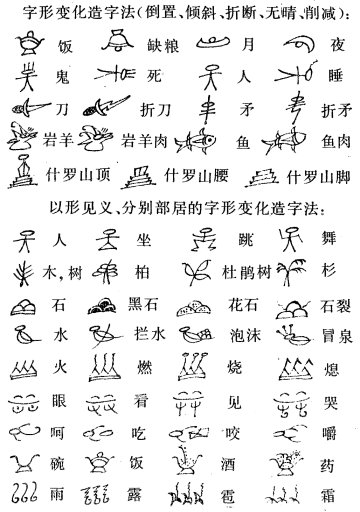 字形变化造字法(倒置、倾斜、折断、无睛、削减):
饭 缺粮 月 夜
鬼 死 人 睡
刀 折刀 矛 折矛
岩羊 岩羊肉 鱼 鱼肉
什罗山顶 什罗山腰 什罗山脚
以形见义、分别部居的字形变化造字法:
人 坐 跳 舞
木,树 柏 杜鹃树 杉
石 黑石 花石 石裂
水 拦水 泡沫 冒泉
火 燃 烧 熄
眼 看 见 哭
呵 吃 咬 嚼
碗 饭 酒 药
雨 露 雹 霜